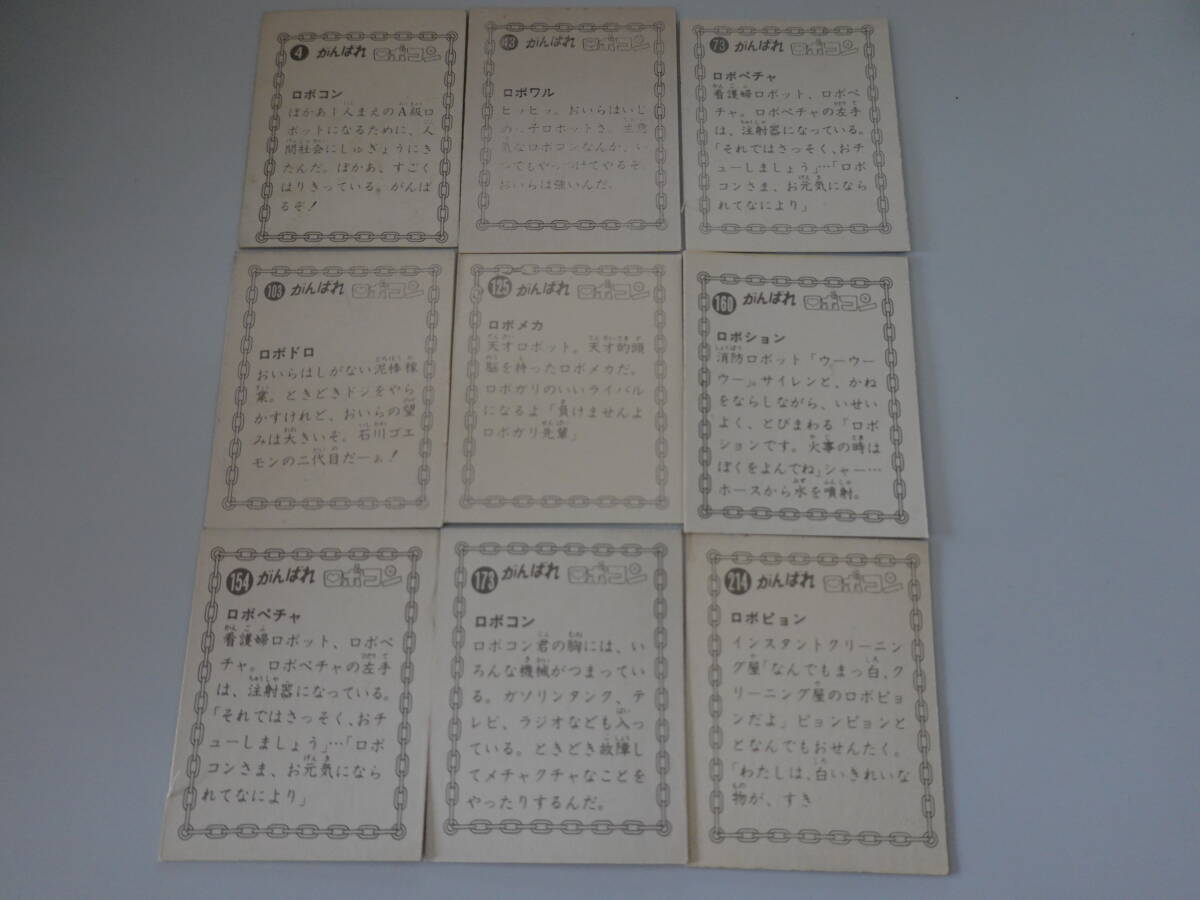 4 がんばれ ロボコン
ロボコン
ぼかあ1人まえのA級ロ
ボットになるために、人
間社会にしゅぎょうにき
たんだ。ぼかあ、すごく
はりきっている。がんば
るぞ！
43 がんばれ ロボコン
ロボワル
ヒッヒッ。おいらはいじ
わっ子ロボットさ。生意
気なロボコンなんか、い
つでもやっつけてやるぞ。
おいらは強いんだ。
73 がんばれ ロボコン
ロボペチャ
看護婦ロボット、ロボペ
チャ。ロボペチャの左手
は、注射器になっている。
「それではさっそく、おチ
ューしましょう」…「ロボ
コンさま、お元気になら
れてなにより」
103 がんばれ ロボコン
ロボドロ
おいらはしがない泥棒稼
業。ときどきドジをやら
かすけれど、おいらの望
みは大きいぞ。石川ゴエ
モンの二代目だーぁ！
125 がんばれ ロボコン
ロボメカ
天才ロボット。天才的頭
脳を持ったロボメカだ。
ロボガリのいいライバル
になるよ「負けませんよ
ロボガリ先輩」
160 がんばれ ロボコン
ロボション
消防ロボット「ウーウー
ウー」。サイレンと、かね
をならしながら、いせい
よく、とびまわる「ロボ
ションです。火事の時は
ぼくをよんでね」シャー…
ホースから水を噴射。
154 がんばれ ロボコン
ロボペチャ
看護婦ロボット、ロボペ
チャ。ロボペチャの左手
は、注射器になっている。
「それではさっそく、おチ
ューしましょう」…「ロボ
コンさま、お元気になら
れてなにより」
173 がんばれ ロボコン
ロボコン
ロボコン君の胸には、い
ろんな機械がつまってい
る。ガソリンタンク、テ
レビ、ラジオなども入っ
ている。ときどき故障し
てメチャクチャなことを
やったりするんだ。
214 がんばれ ロボコン
ロボピョン
インスタントクリーニン
グ屋「なんでもまっ白、ク
リーニング屋のロボピョ
ンだよ」ピョンピョンと
となんでもおせんたく。
「わたしは、白いきれいな
物が、すき